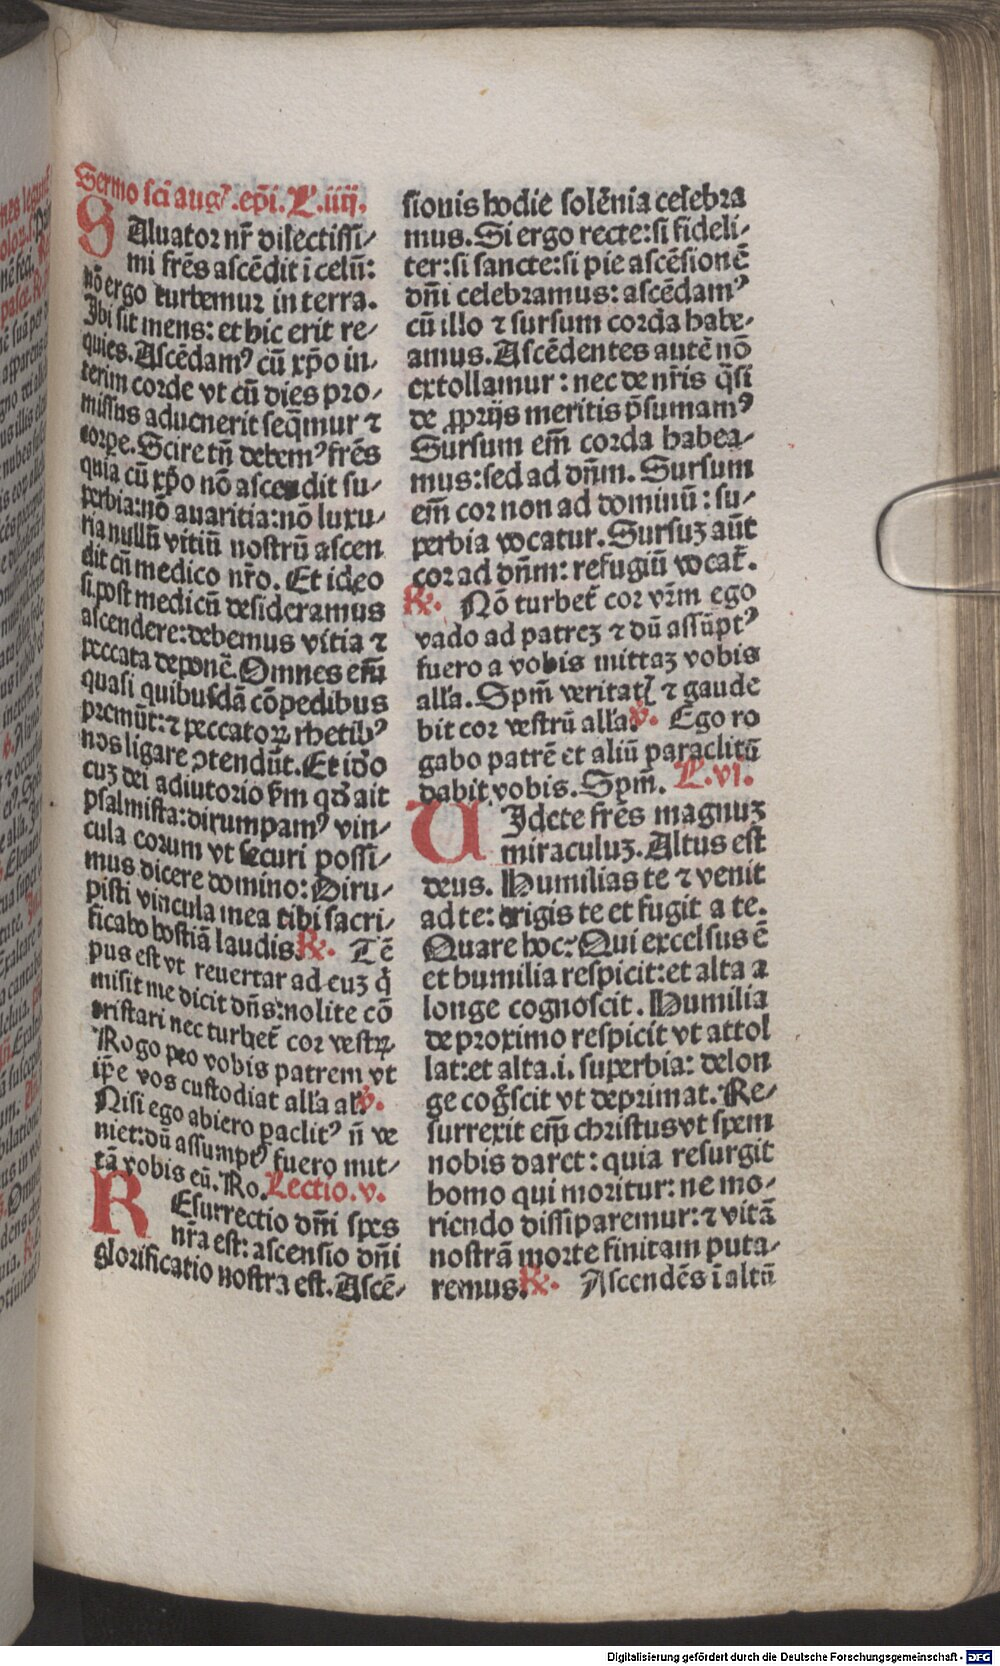 Sermo sci augꝰ.epi. L.iiij.
SAluator nr̄ dilectissi⸗
mi frēs ascēdit ī celū:
nō ergo turbemur in terra.
Ibi sit mens: et hic erit re⸗
quies. Ascēdamꝰ cū xp̄o in⸗
terim corde vt cū dies pro⸗
missus aduenerit seq̄mur ⁊
corpe. Scire tn̄ debemꝰ frēs
quia cū xp̄o nō ascendit su⸗
perbia: nō auaritia: nō luxu⸗
ria nullū vitiū nostrū ascen
dit cū medico nr̄o. Et ideo
si post medicū desideramus
ascendere: debemus vitia ⁊
peccata deponē. Omnes em̄
quasi quibusdā cōpedibus
premūt: ⁊ peccatoꝝ rhetibꝰ
nos ligare ꝯtendūt. Et idꝰo
cuꝫ dei adiutorio ẜm qd̓ ait
psalmista: dirumpamꝰ vin⸗
cula eorum vt securi possi⸗
mus dicere domino: Diru⸗
pisti vincula mea tibi sacri⸗
ficabo hostiā laudis. ℟. Tē
pus est vt reuertar ad euꝫ q̇
misit me dicit dn̄s: nolite cō
tristari nec turbet̄ cor vestrꝝ
Rogo pro vobis patrem vt
ip̄e vos custodiat alľa alľ ℣.
Nisi ego abiero paclitꝰ n̄ ve
niet: dū assumptꝰ fuero mit⸗
tā vobis eū. Ro. Lectio. v.
REsurrectio dn̄i spes
nr̄a est: ascensio dn̄i
glorificatio nostra est. Ascē⸗
sionis hodie solēnia celebra
mus. Si ergo recte: si fideli⸗
ter: si sancte: si pie ascēsionē
dn̄i celebramus: ascēdamꝰ
cū illo ⁊ sursum corda habe⸗
amus. Ascēdentes autē nō
extollamur: nec de nr̄is q̄si
de ꝓprijs meritis p̄sumamꝰ
Sursum em̄ corda habea⸗
mus: sed ad dn̄m. Sursum
em̄ cor non ad dominū: su⸗
perbia vocatur. Sursuꝫ aūt
cor ad dn̄m: refugiū vocat̄.
℟. Nō turbet̄ cor vr̄m ego
vado ad patreꝫ ⁊ dū assūptꝰ
fuero a vobis mittaꝫ vobis
alľa. Spm̄ veritatꝭ ⁊ gaude
bit cor vestrū alľa. ℣. Ego ro
gabo patrē et aliū paraclitū
dabit vobis. Spm̄. L. vi.
UIdete frēs magnuꝫ
miraculuꝫ. Altus est
deus. Humilias te ⁊ venit
ad te: erigis te et fugit a te.
Quare hoc: Qui excelsus ē
et humilia respicit: et alta a
longe cognoscit. Humilia
de proximo respicit vt attol
lat: et alta .i. superbia: delon
ge cog̊scit vt deprimat. Re⸗
surrexit em̄ christus vt spem
nobis daret: quia resurgit
homo qui moritur: ne mo⸗
riendo dissiparemur: ⁊ vitā
nostrā morte finitam puta⸗
remus. ℟. Ascendēs ī altū
Digitalisierung gefördert durch die Deutsche Forschungsgemeinschaft - DFG